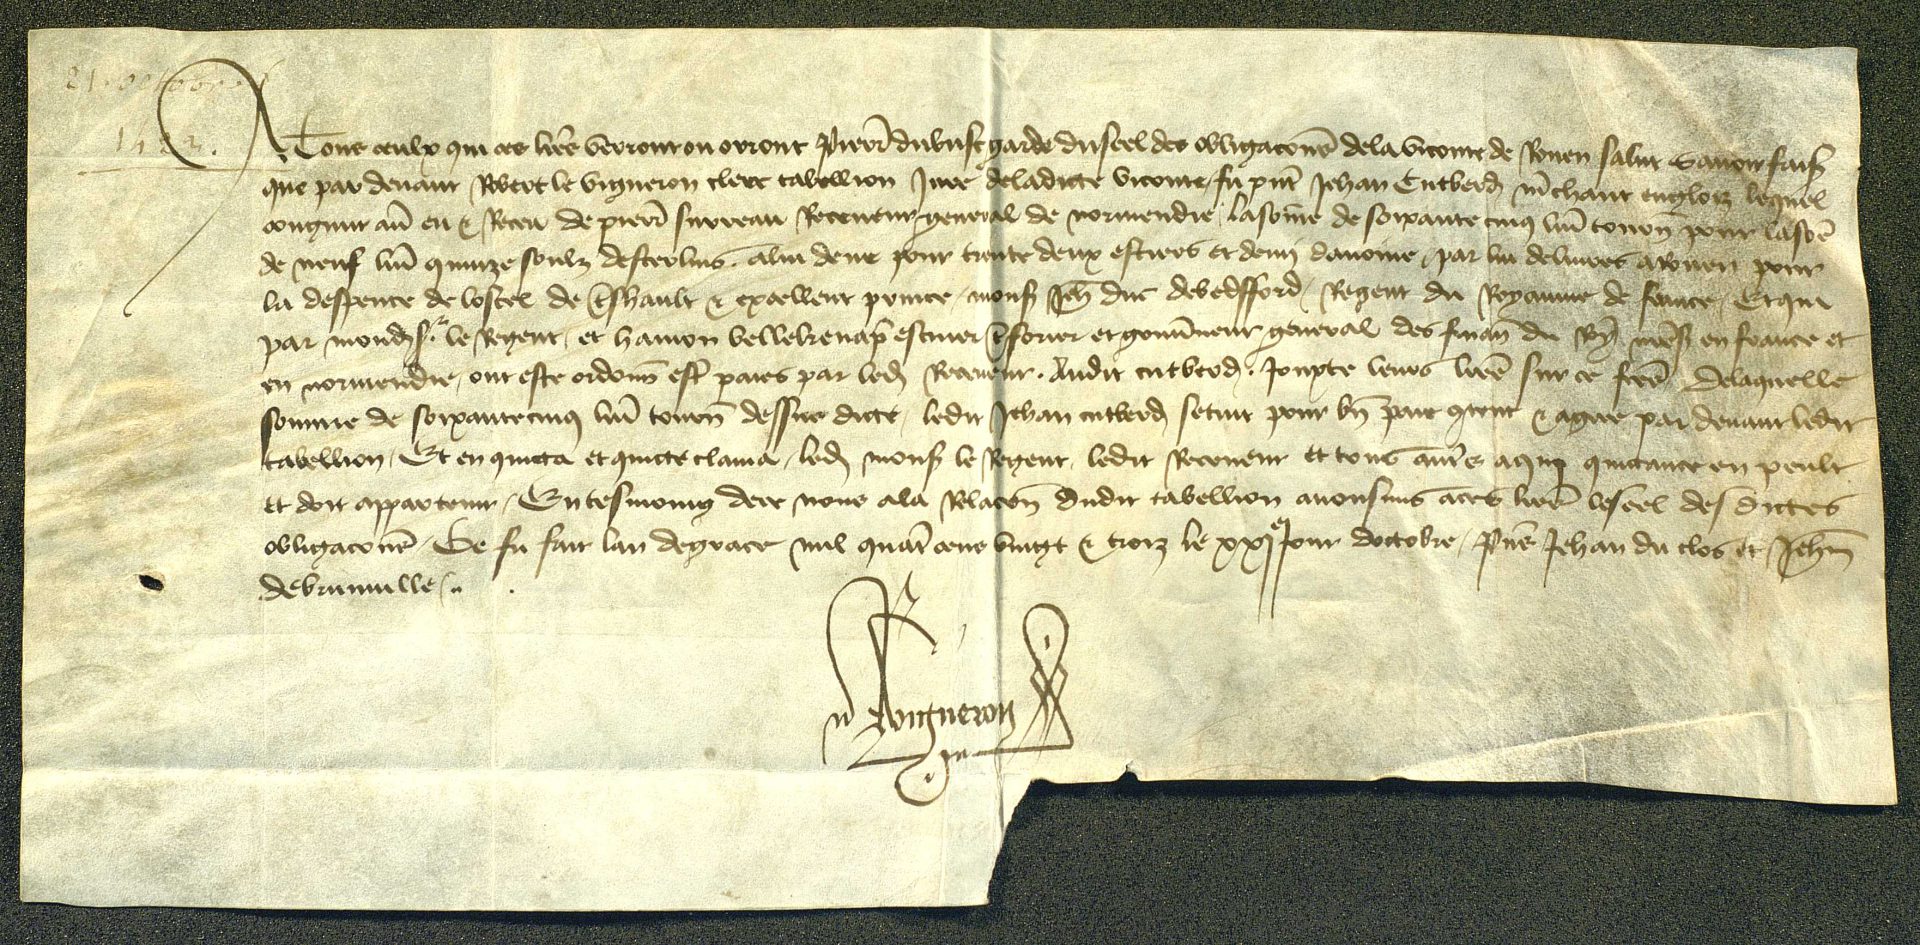 21 octobre
1423.
A Tous ceulx qui ces lrēs verront ou orront Pierrē du buisc garde du seel des obligacionē de la viconte de Rouen salut Savoir fais
que par devant Robert le vigneron clerc tabellion Jure de ladicte viconte fu pnt Jehan Cutberd mchant englois lequel
congnut avoir eu & Receu de pierrē surreau Receveur general de normendie la somē de soixante cinq liv tourn pour la somē
de neuf liv quinze soulz desterlins. a lui deue pour trente deux estiers et demj davoine, par lui delivres a Rouen pour
la despence de lostel de tshault & excellent prince, mons Jeh duc de bedfford, Regent du Royaume de france, Et qui
par mond s.r le Regent, et hamon bellekenap escuier tsorier et gouvneur general des finan du Roy nres en france et
en normendie, ont este ordonn estre paies par led Receveur. Audit cutberd. Jouxte leurs lrēs sur ce fcēs Delaquelle
somme de soixante cinq liv tourn dessus dicte, ledit Jehan cutberd se tint pour bn paie gtent & agree par devant ledit
tabellion, Et en quicta et quicte clama, led mons le Regent, ledit Receveur et tous autrēs a qui quictance en peult
et doit appartenir, En tesmoing de ce nous a la Relacion dudit tabellion avons mis a ces lrēs le seel des dictes
obligacionē, Ce fu fait lan de grace mil quatre cens vingt & trois le xxj e Jour doctobre, Pnēs Jehan du clos et Jehn
de brunville
R vigneron